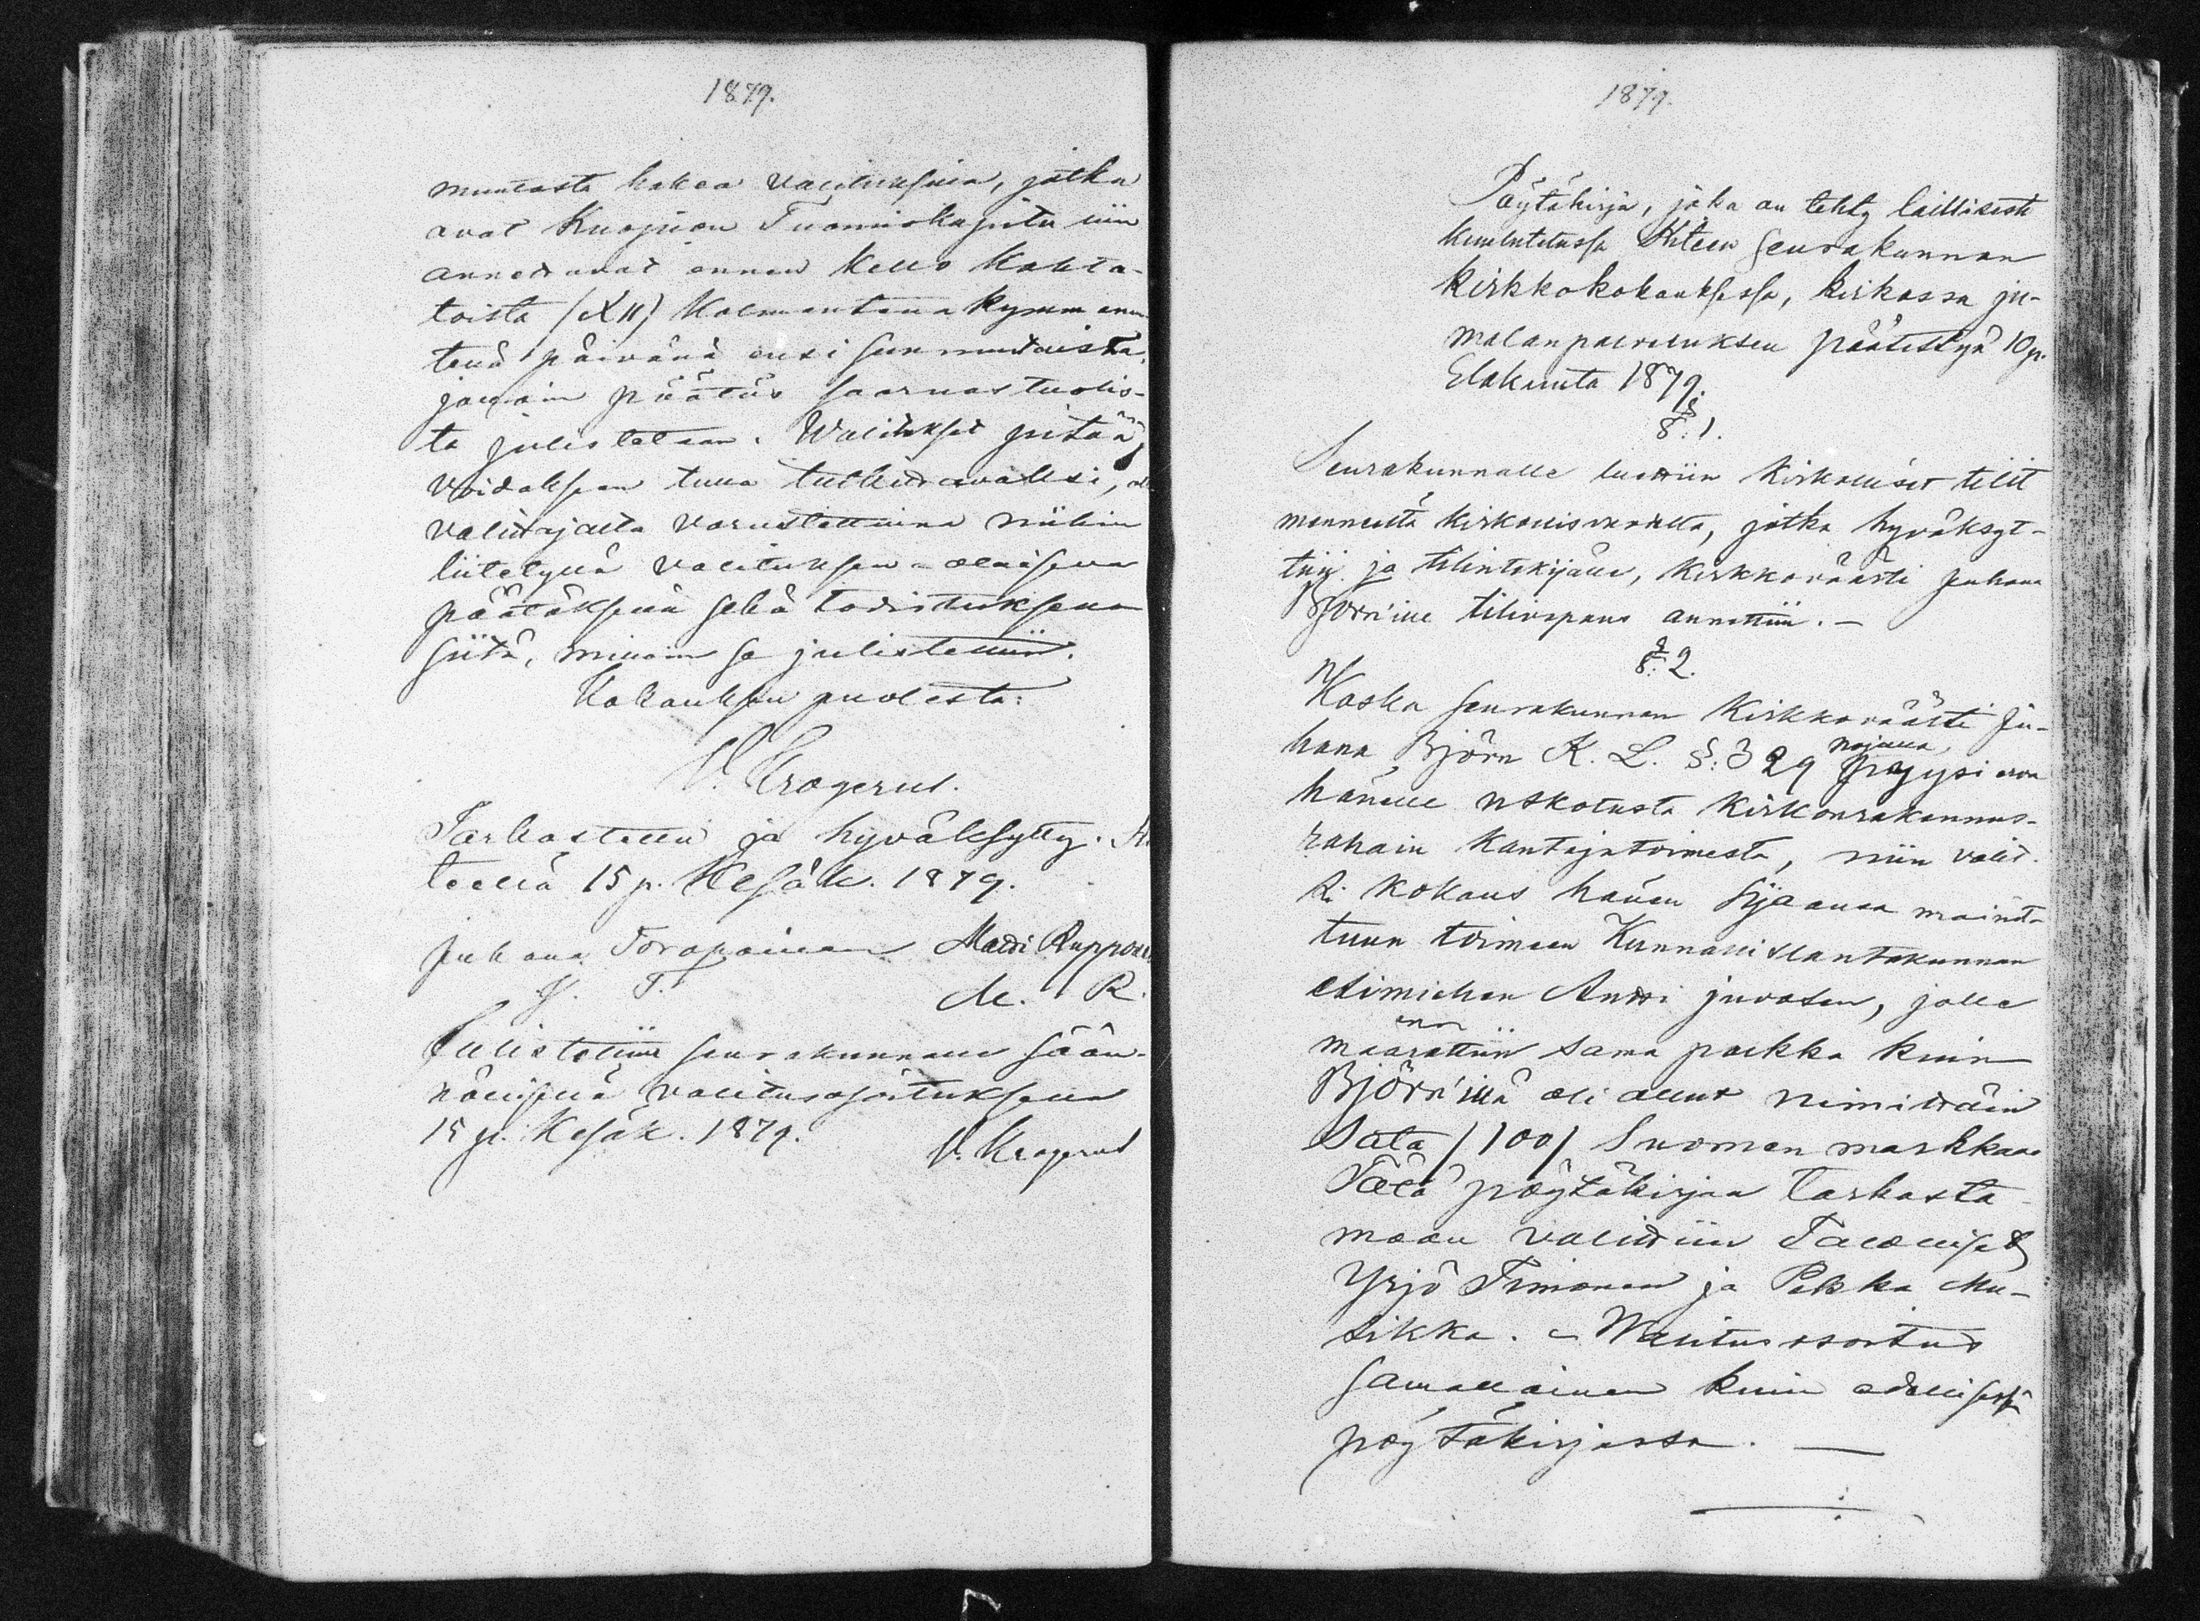 1879.
muutosta hakea valituksissa, jotka
ovat Kuopion Tuomiokapituliin
annettavat ennen kello kahta-
toista (XII) kolmantena kymmenen-
tenä päivänä siitä luettuista,
jona päätös saarnastuolis-
ta julistetaan. Walitukset pitää,
voidaksean tulla tutkittavaksi,
valittajalta varustettuina niihin
liitetyllä valituksen-alaisena
päätöksellä sekä todistuksella
siitä, milloin se julistettiin.
Kokouksen puolesta:
V. Krogerus.
Tarkastettu ja hyväksytty. Ki-
teellä 15 p. Kesäk. 1879.
Juhana Toropainen Matti Rupponen
J. T. M. R.
Julistettiin seurakunnalle sään-
nöllisellä valitusosoituksella
15 p. Kesäk. 1879.
V. Krogerus
1879.
Pöytäkirja, joka on tehty laillisesti
kuulutetussa Kiteen seurakunnan
kirkkokokouksessa, kirkossa ju-
malanpalveluksen päätettyä 10 p.
Elokuuta 1879.
§. 1.
Seurakunnalle luettiin kirkolliset tilit
menneeltä kirkollisvuodelta, jotka hyväksyt-
tiin ja tilintekijälle, kirkkoväärti Juhana
Björn'ille tilivapaus annettiin. —
§. 2.
Koska seurakunnan Kirkkoväärti Ju-
hana Björn K. L. §: 329 nojalla pyysi eron
hänelle uskotusta kirkonrakennus-
rahain kantajatoimesta, niin valit-
si kokous hänen sijaansa mainit-
tuun toimeen Kunnallislautakunnan
esimiehen Antti Juvosen, jolle
määrättiin sama palkka kuin
Björn'illä oli ollut nimittäin
Sata /100/ Suomen markkaa
Tätä pöytäkirjaa tarkasta-
maan valittiin Talolliset
Yrjö Timonen ja Pekka Mu-
sikka. — Walitusosoitus
samallainen kuin edellisessä
pöytäkirjassa. —